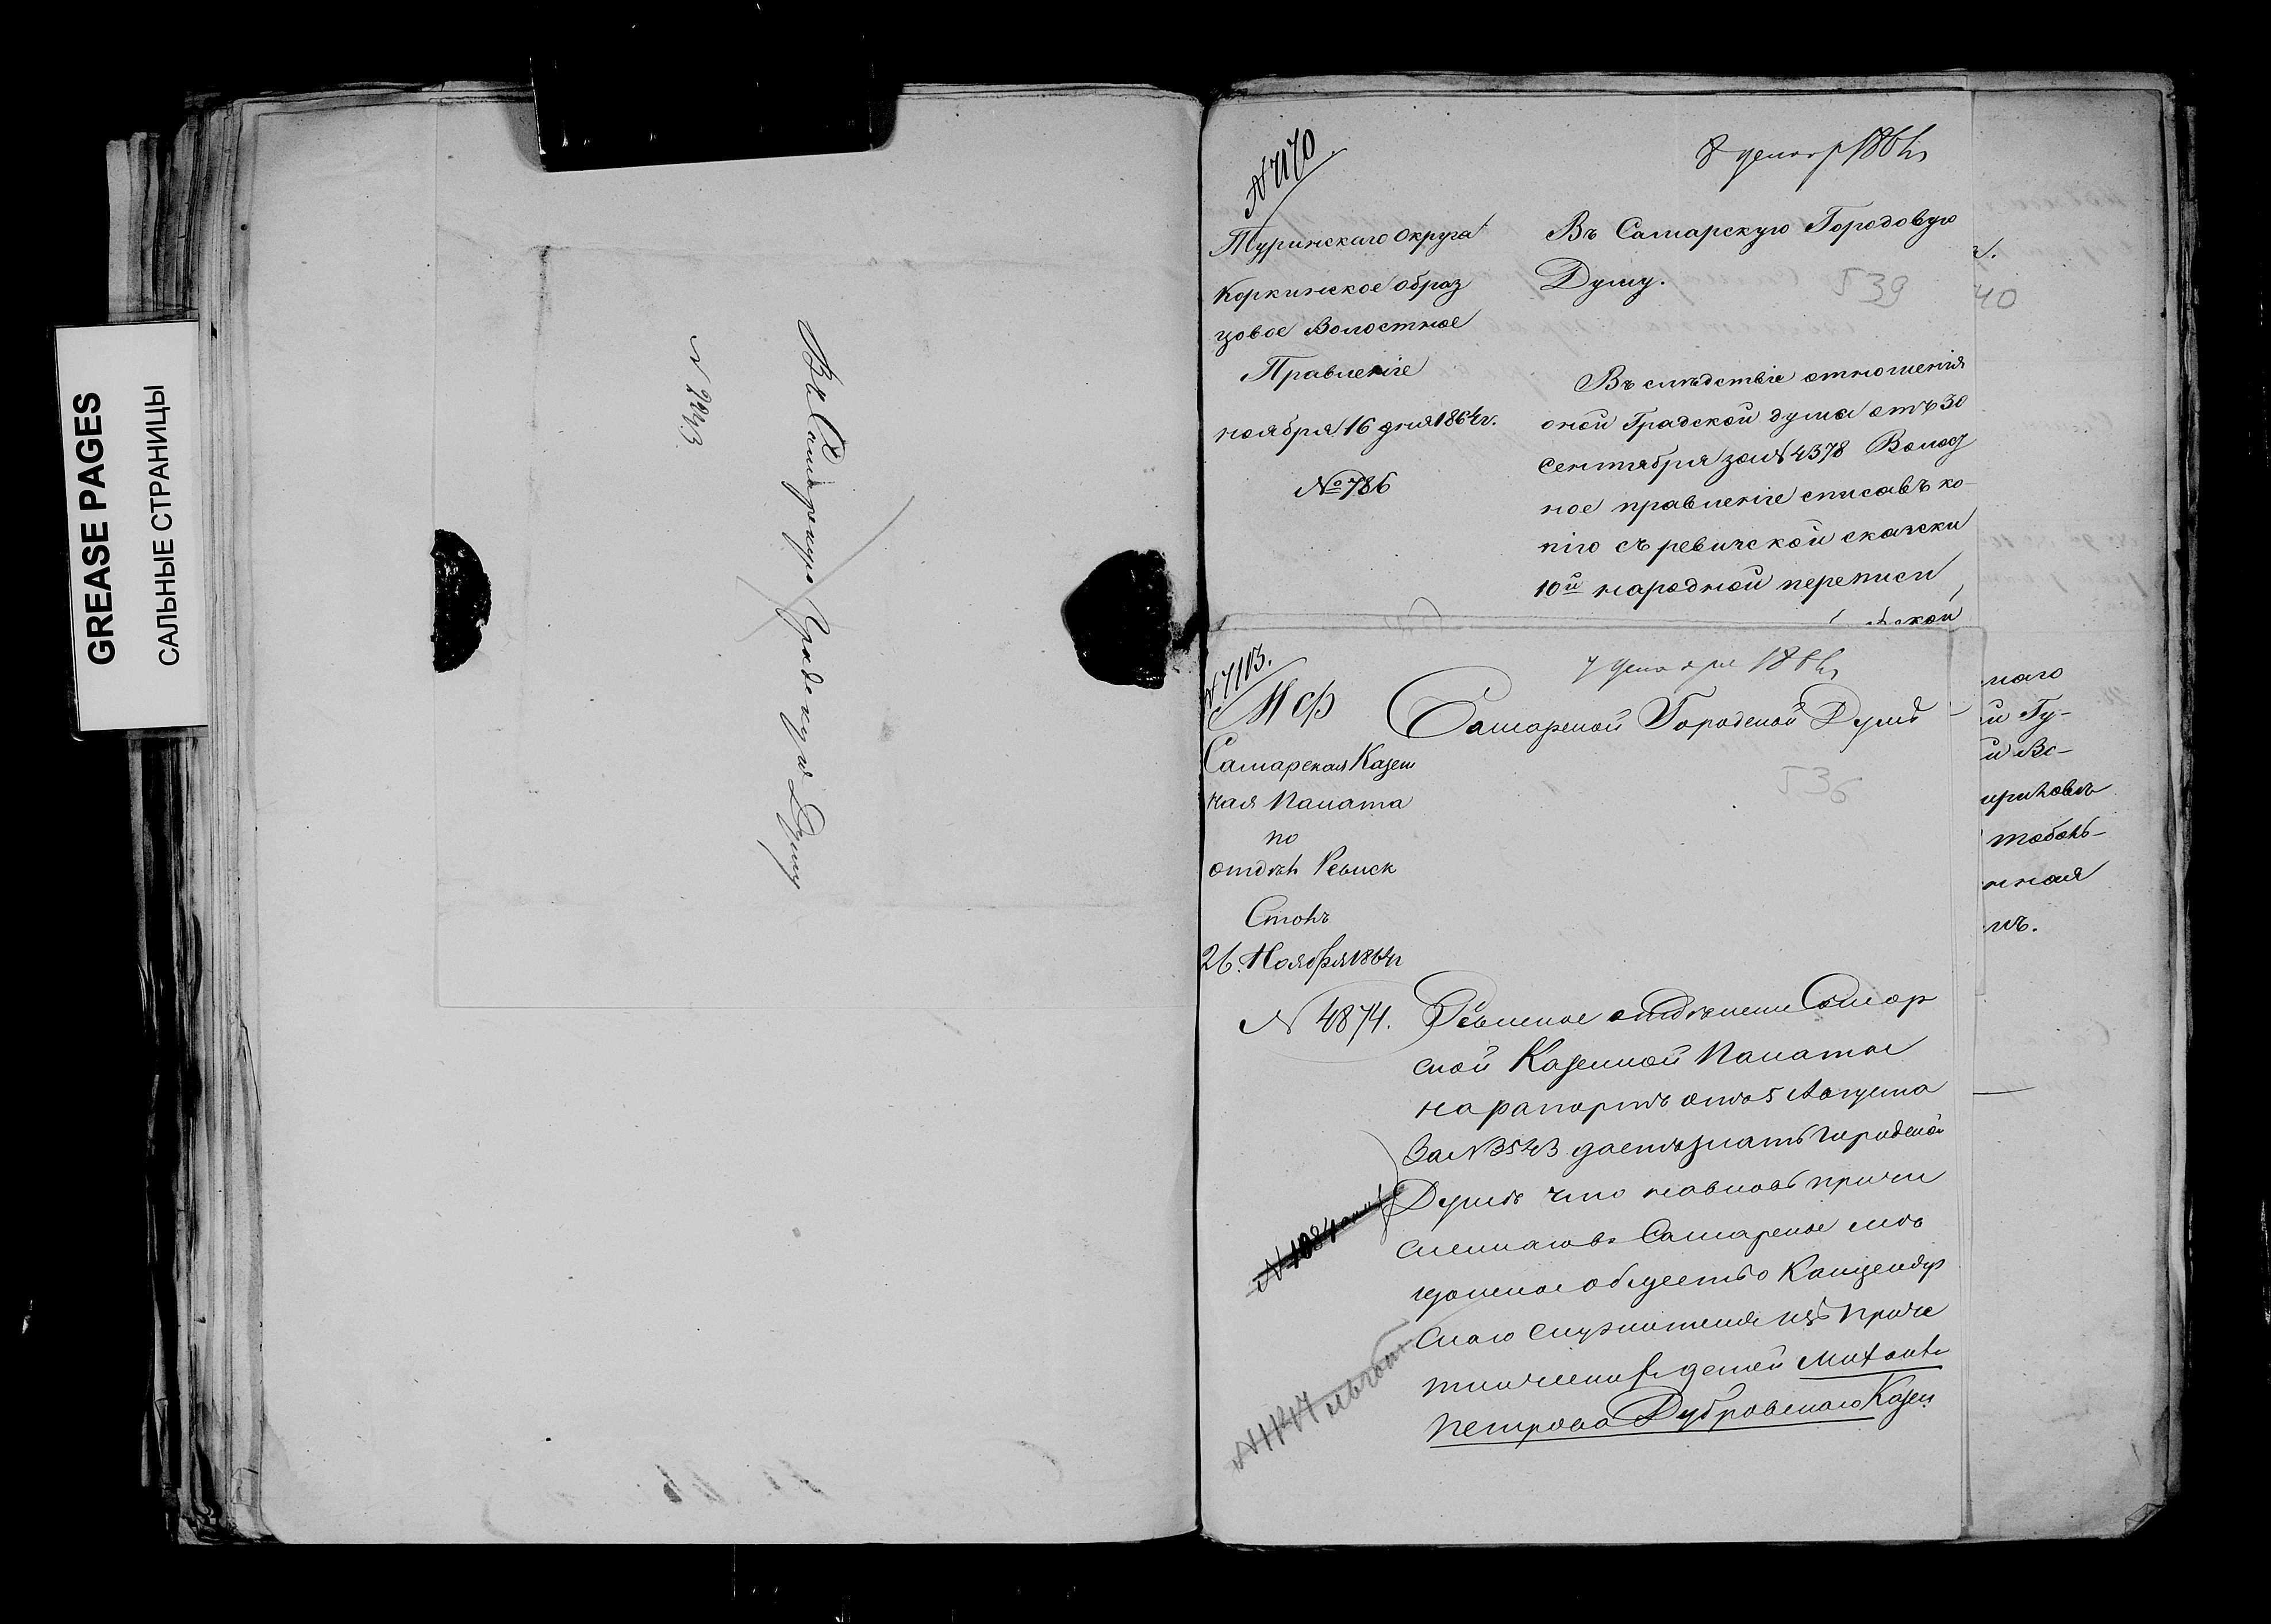 GREASE PAGES
САЛЬНЫЕ СТРАНИЦЫ
Въ Самарскую Градскую Думу
№ 2243
№ 7170
8 декабр 1864 г
Туринскаго Округа
Коркинское образ
цовое Волостное
Правленіе
ноября 16 дня 1864 г.
№ 786
Въ Самарскую Городовую
Думу.
539
Въ слѣдствіе отношенія
оной Градской думы отъ 30
сентября за № 4378 Волост
ное правленіе списавъ ко-
пію съ ревизской сказски
10й народной переписи
ской
№ 7113.
7 декабря 1864 г
М Ф
Самарской Городской Думѣ
Самарская Казен
ная Палата
по
отдѣл Ревизск
Столъ
26. Ноября 1864 г
№ 4874.
536
Ревизское отдѣленіе Самар
ской Казенной Палаты
на рапортъ отъ 5 Августа
За № 3543 даетъ знать Городской
Думѣ что на вновь причи
сленнаго въ Самарское мѣ
щанское общество Канцеляр
скаго служителя изъ приче
тническихъ детей Михаила
Петрова Дубровскаго Казен
40
наго
й Гу-
й Во-
ириковъ
тоболь-
нная
мъ.